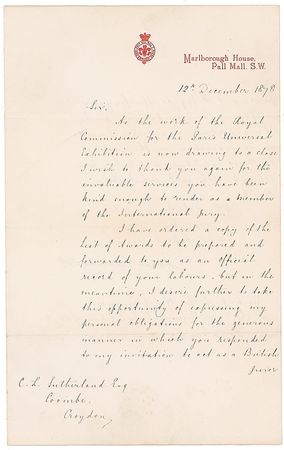 Marlborough House.
Pall Mall. S.W.
12th December 1878
Sir,
As the work of the Royal
Commission for the Paris Universal
Exhibition is now drawing to a close
I wish to thank you again for the
invaluable services you have been
kind enough to render as a Member
of the International Jury.
I have ordered a copy of the
List of Awards to be prepared and
forwarded to you as an official
record of your labours, but in the
meantime, I desire further to take
this opportunity of expressing my
personal obligations for the generous
manner in which you responded
to my invitation to act as a British
Juror
C. L. Sutherland Esq
Coombe.
Croydon,